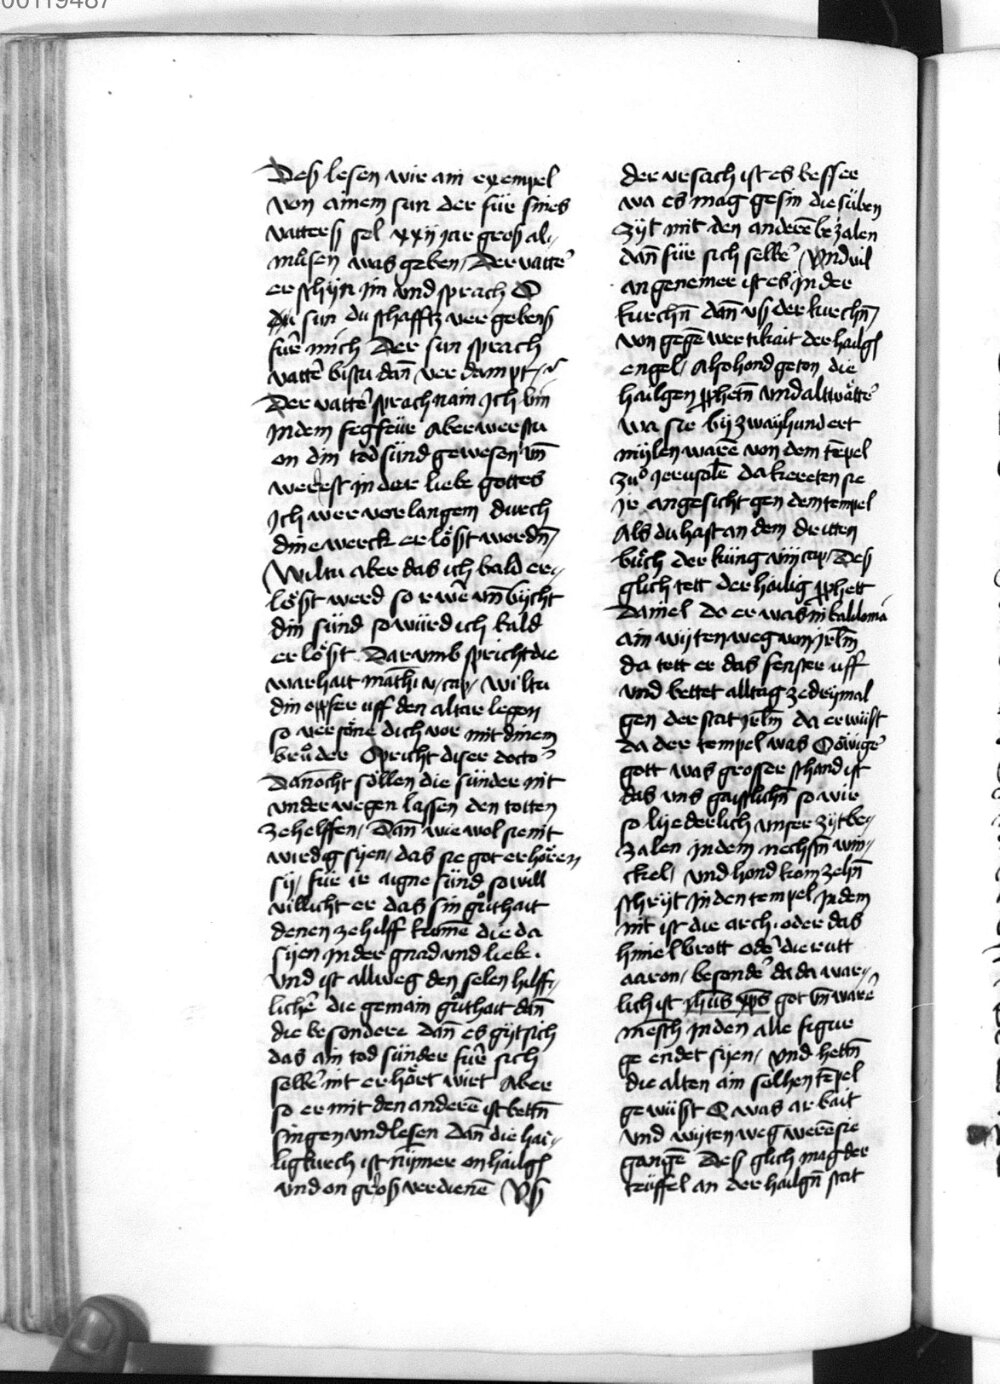 00119487
Deß lesen wir ain exempel
von ainem sun der für sines
vatterß sel xxij iar groß al-
můsen was geben / Der vatteͬ
erschijn im vnd sprach O
du sun du schafftz vergebenß
für mich Der sun sprach
vatteͬ bistu dañ verdampt /
Der vatteͬ sprach nain Ich bin
In dem fegfeür Aber werstu
on din tod sünd gewesen vñ
werest in der liebe gottes
Ich wer vor langem durch
dine werck erlößt wordñ /
Wiltu aber das ich bald er-
lößt werd so rwe vñ bijcht
din sünd so würd ich bald
erlößt Darumb spricht die
warhait mathi v / cap / wiltu
din opfer uff den altar legen
so versöne dich vor mit dinem
brůder Spricht diser doctoͬ
Dañocht söllen die sünder nit
vnderwegen lassen den totten
zehelffen / Dañ wie wol sie nit
wirdig sijen / das sie got erhören
sij / für ir aigne sünd so will
villicht er das sin gůthait
denen zehilff kume die da
sijen in der gnad vnd liebe.
Vnd ist allweg den selen hilff-
licheͬ die gemain gůthait dañ
die besondere dañ es gijt sich
das ain tod sünder für sich
selbeͬ nit erhört wirt Aber
so er mit den anderē ist bettñ
singen vnd lesen Dañ die hai-
lig kirch ist nijmer on hailgß
vnd on groß verdienē Vß
der vrsach ist es besser
wa es mag gesin die süben
zijt mit den anderē bezalen
dañ für sich selbeͬ Vnd vil
angenemer ist es in der
kirchñ dañ vß der kirchñ /
von gegē wertikait der hailgß
engel / Also hond geton die
hailgen ꝓphetñ vnd altvätteͬ
wa sie bij zwayhundert
mijlen warē von dem tēpel
zů Jerusolē da kereten sie
ir angesicht gen dem tempel
Als du hast an dem dritten
bůch der küng viij cap / Deß
glich tett der hailig ꝓphett
Daniel do er was in babilonia
ain wijten weg von jrlm̄
da tett er das fenster uff
vnd bettet alltag zedrijmal
gen der stat jrlm̄ da er wüst
da der tempel was O öwigeͬ
gott was grosser schand ist
das vns gaistlichñ so wir
so liederlich vnser zijt be-
zalen in dem nechstñ win-
ckel / vnd hond kom zehñ
schrijt in den tempel in dem
nit ist die arch. oder das
himelbrott odeͬ die rutt
aaron / besondeͬ da da war-
lich ist jhūs xp̄s got vñ wareͬ
mēsch in den alle figur
geendet sijen / vnd hettñ
die alten ain sölhen tēpel
gewüßt O was arbait
vnd wijten weg werē sie
gangē Deß glich mag der
teüffel an der hailgñ stat